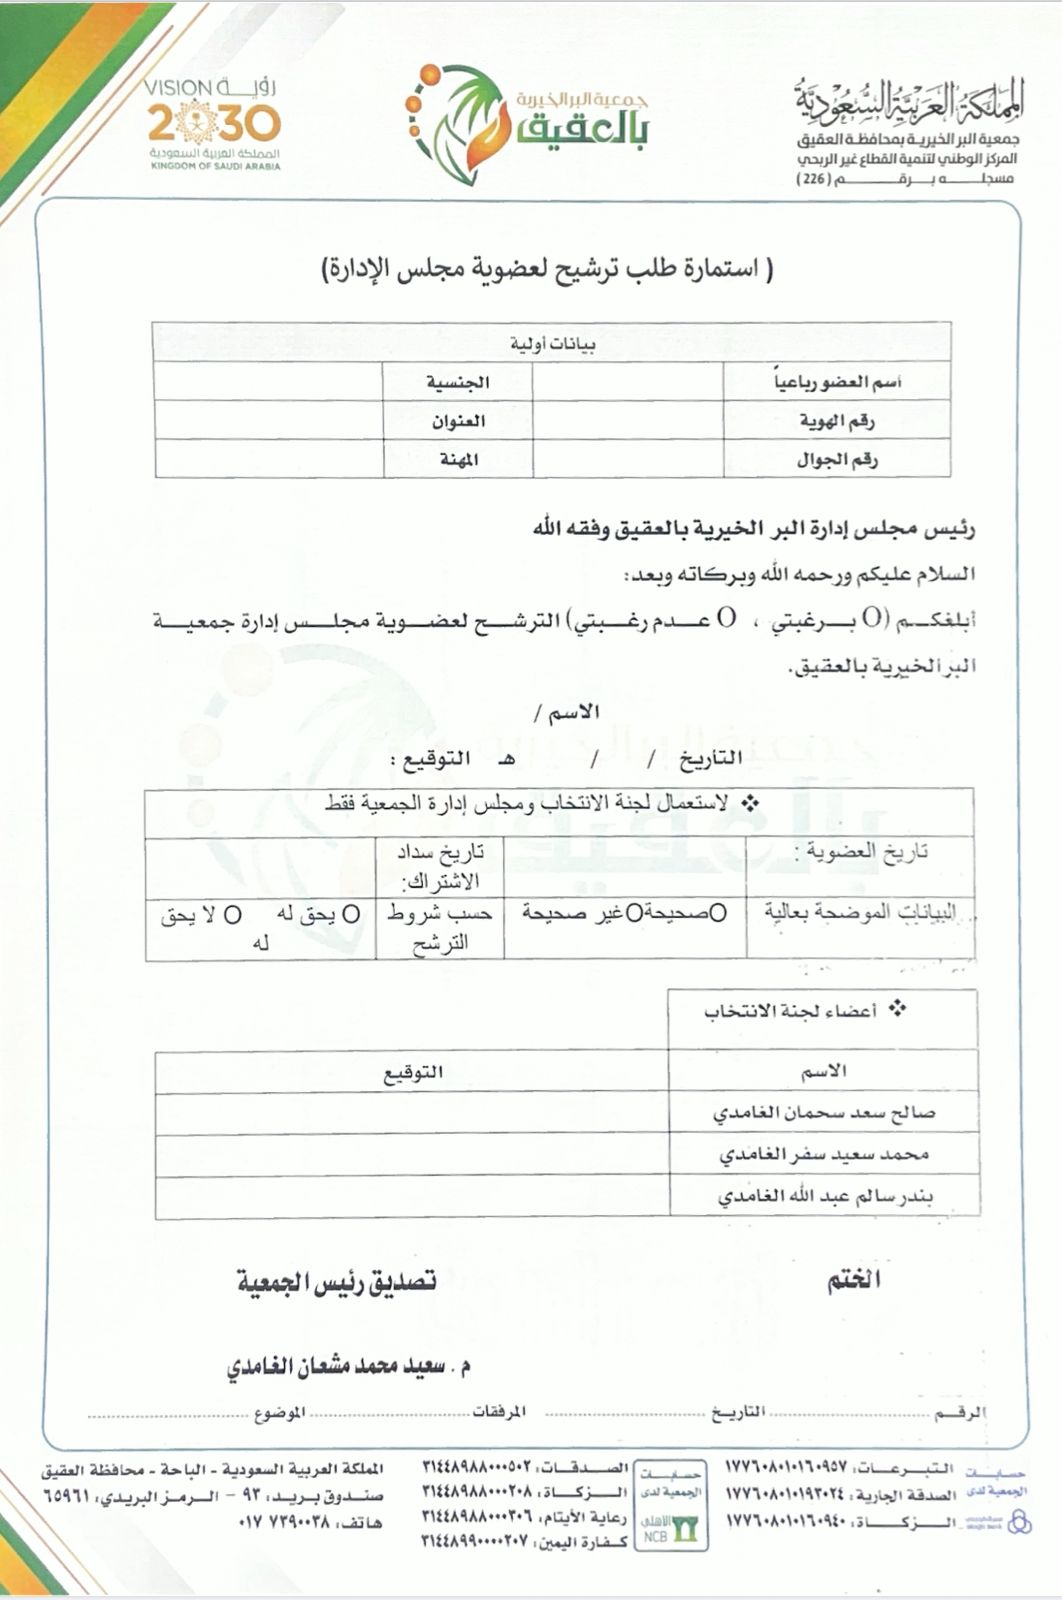 VISION رؤيــة
2030
المملكة العربية السعودية
KINGDOM OF SAUDI ARABIA
جمعية البر الخيرية
بالعقيق
المملكة العربية السعودية
جمعية البر الخيرية بمحافظة العقيق
المركز الوطني لتنمية القطاع غير الربحي
مسجلــــه بـــرقـــــم (226)
( استمارة طلب ترشيح لعضوية مجلس الإدارة)
بيانات أولية
أسم العضو رباعياً الجنسية
رقم الهوية العنوان
رقم الجوال المهنة
رئيس مجلس إدارة البر الخيرية بالعقيق وفقه الله
السلام عليكم ورحمه الله وبركاته وبعد:
أبلغكــم (O بــرغبتي ، O عــدم رغــبتي) الترشــح لعضــوية مجلــس إدارة جمعيــة
البر الخيرية بالعقيق.
الاسم /
التاريخ / / هـ التوقيع :
❖ لاستعمال لجنة الانتخاب ومجلس إدارة الجمعية فقط
تاريخ العضوية : تاريخ سداد الاشتراك:
البيانات الموضحة بعالية Oصحيحة Oغير صحيحة حسب شروط الترشح O يحق له O لا يحق له
❖ أعضاء لجنة الانتخاب
الاسم التوقيع
صالح سعد سحمان الغامدي
محمد سعيد سفر الغامدي
بندر سالم عبد الله الغامدي
الختم تصديق رئيس الجمعية
م . سعيد محمد مشعان الغامدي
الرقــم ........................ التاريــخ ........................ المرفقات ........................ الموضوع ........................
حسابات الجمعية لدى
التبــرعــات: ١٧٧٦٠٨٠١٠١٦٠٩٥٧
الصدقة الجارية: ١٧٧٦٠٨٠١٠١٩٣٠٢٤
الــزكـــاة: ١٧٧٦٠٨٠١٠١٦٠٩٤٠
alrajhi bank
حسابات الجمعية لدى
الأهلي NCB
الصـدقــات: ٣١٤٤٨٩٨٨٠٠٠٥٠٢
الــزكــاة: ٣١٤٤٨٩٨٨٠٠٠٢٠٨
رعاية الأيتام: ٣١٤٤٨٩٨٨٠٠٠٣٠٦
كفارة اليمين: ٣١٤٤٨٩٩٠٠٠٠٢٠٧
المملكة العربية السعودية - الباحة - محافظة العقيق
صنـدوق بريـد: ٩٣ - الـرمز البريدي: ٦٥٩٦١
هاتف: ٠١٧ ٧٣٩٠٠٣٨